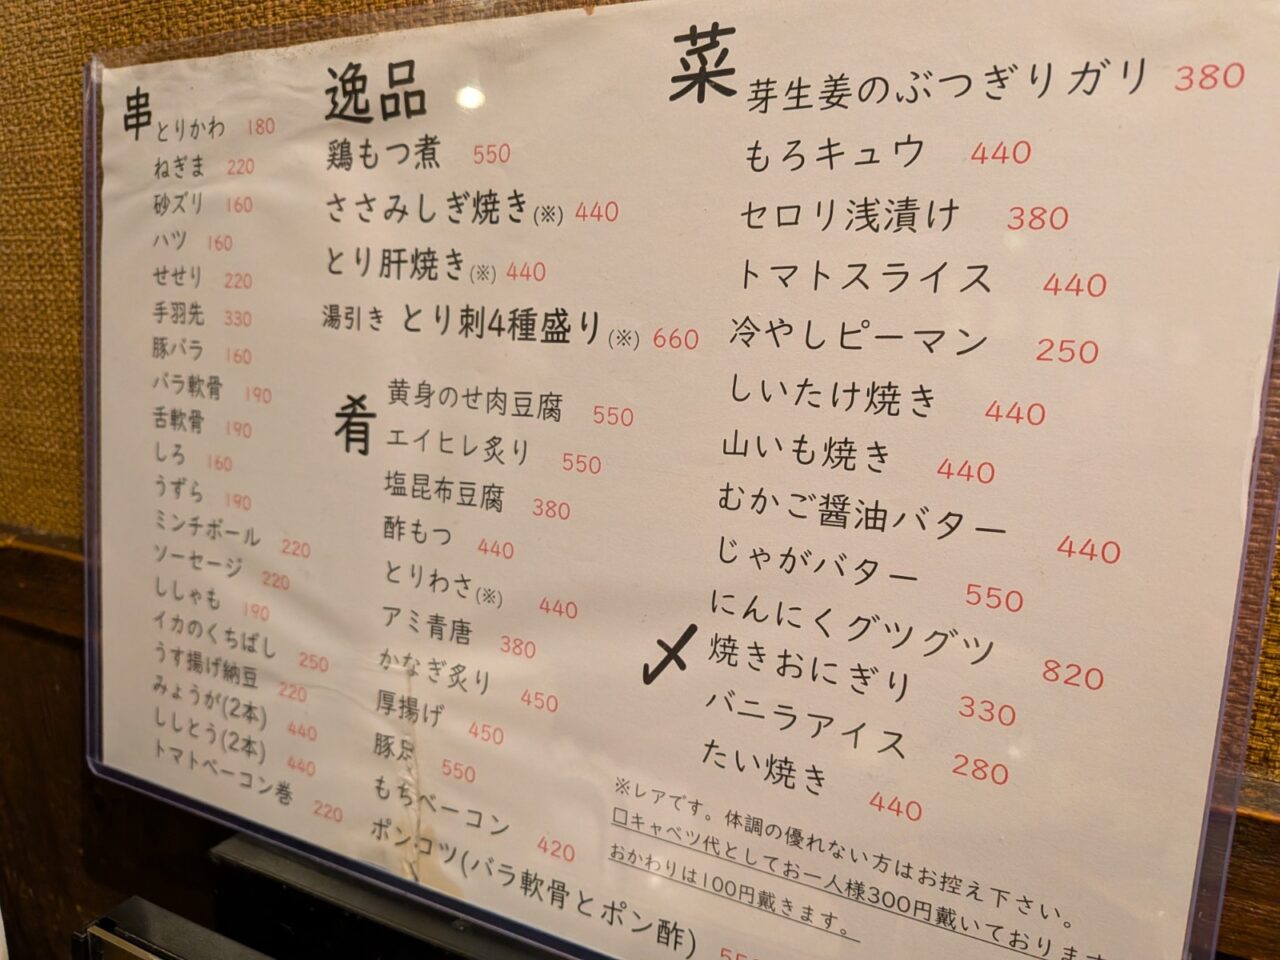 串
とりかわ 180
ねぎま 220
砂ズリ 160
ハツ 160
せせり 220
手羽先 330
豚バラ 160
バラ軟骨 190
舌軟骨 190
しろ 160
うずら 190
ミンチボール 220
ソーセージ 220
ししゃも 190
イカのくちばし 250
うす揚げ納豆 220
みょうが(2本) 440
ししとう(2本) 440
トマトベーコン巻 220
逸品
鶏もつ煮 550
ささみしぎ焼き(※) 440
とり肝焼き(※) 440
湯引き とり刺4種盛り(※) 660
肴
黄身のせ肉豆腐 550
エイヒレ炙り 550
塩昆布豆腐 380
酢もつ 440
とりわさ(※) 440
アミ青唐 380
かなぎ炙り 450
厚揚げ 450
豚足 550
もちベーコン 420
ポンコツ(バラ軟骨とポン酢)
菜
芽生姜のぶつぎりガリ 380
もろキュウ 440
セロリ浅漬け 380
トマトスライス 440
冷やしピーマン 250
しいたけ焼き 440
山いも焼き 440
むかご醤油バター 440
じゃがバター 550
にんにくグツグツ 820
〆
焼きおにぎり 330
バニラアイス 280
たい焼き 440
※レアです。体調の優れない方はお控え下さい。
□キャベツ代としてお一人様300円戴いております
おかわりは100円戴きます。